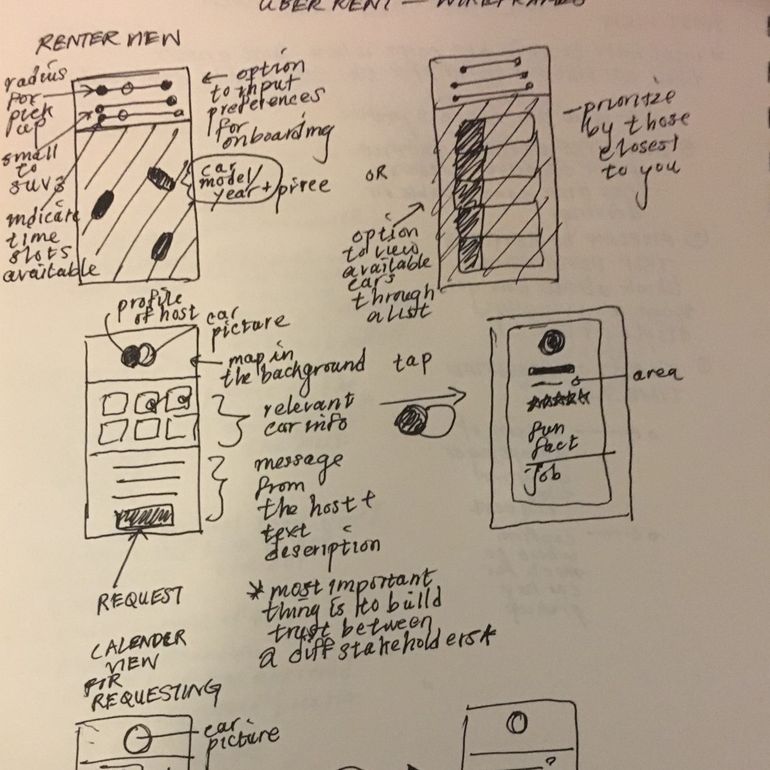 UBER RENT — WIREFRAMES
RENTER VIEW
radius
for
pick
up
small
to
suvs
indicate
time
slots
available
← option
to input
preferences
for
onboarding
car
model/
year + piree
OR
option
to view
available
cars
through
a list
prioritize
by those
closest
to you
profile
of host
car
picture
map in
the background
relevant
car info
message
from
the host +
text
desription
REQUEST
tap
area
fun
fact
job
* most important
thing is to build
trust between
a diff stakeholders *
CALENDER
VIEW
FOR
REQUESTING
car
picture